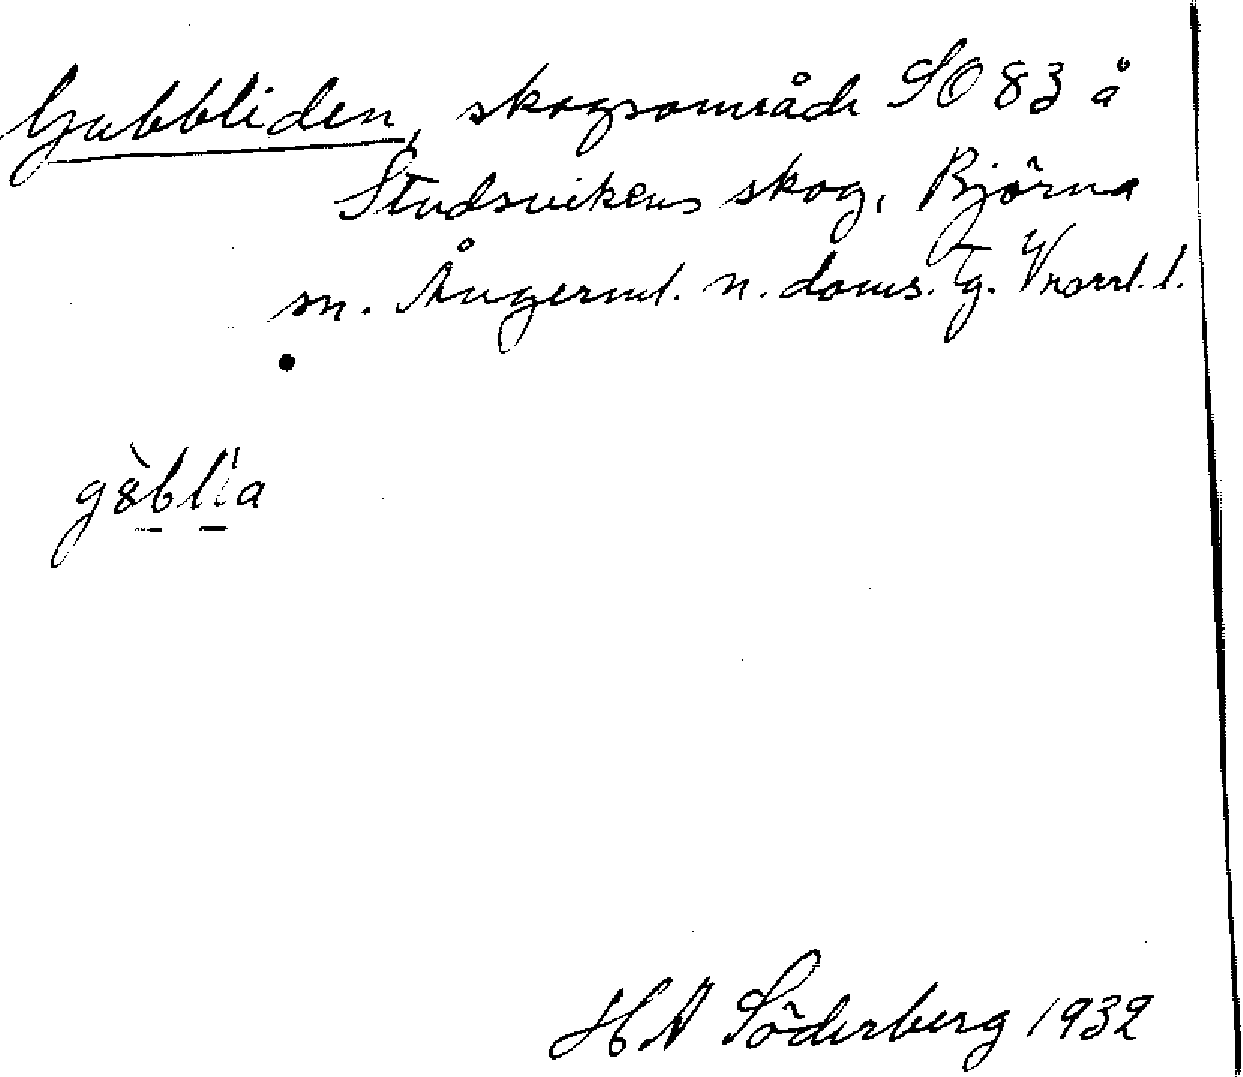 Gubbliden, skogsområde SO 83 å
Studsvikens skog, Björna
sn. Ångerml. n. doms. tg. Vnorrl. l.
H A Söderberg 1932